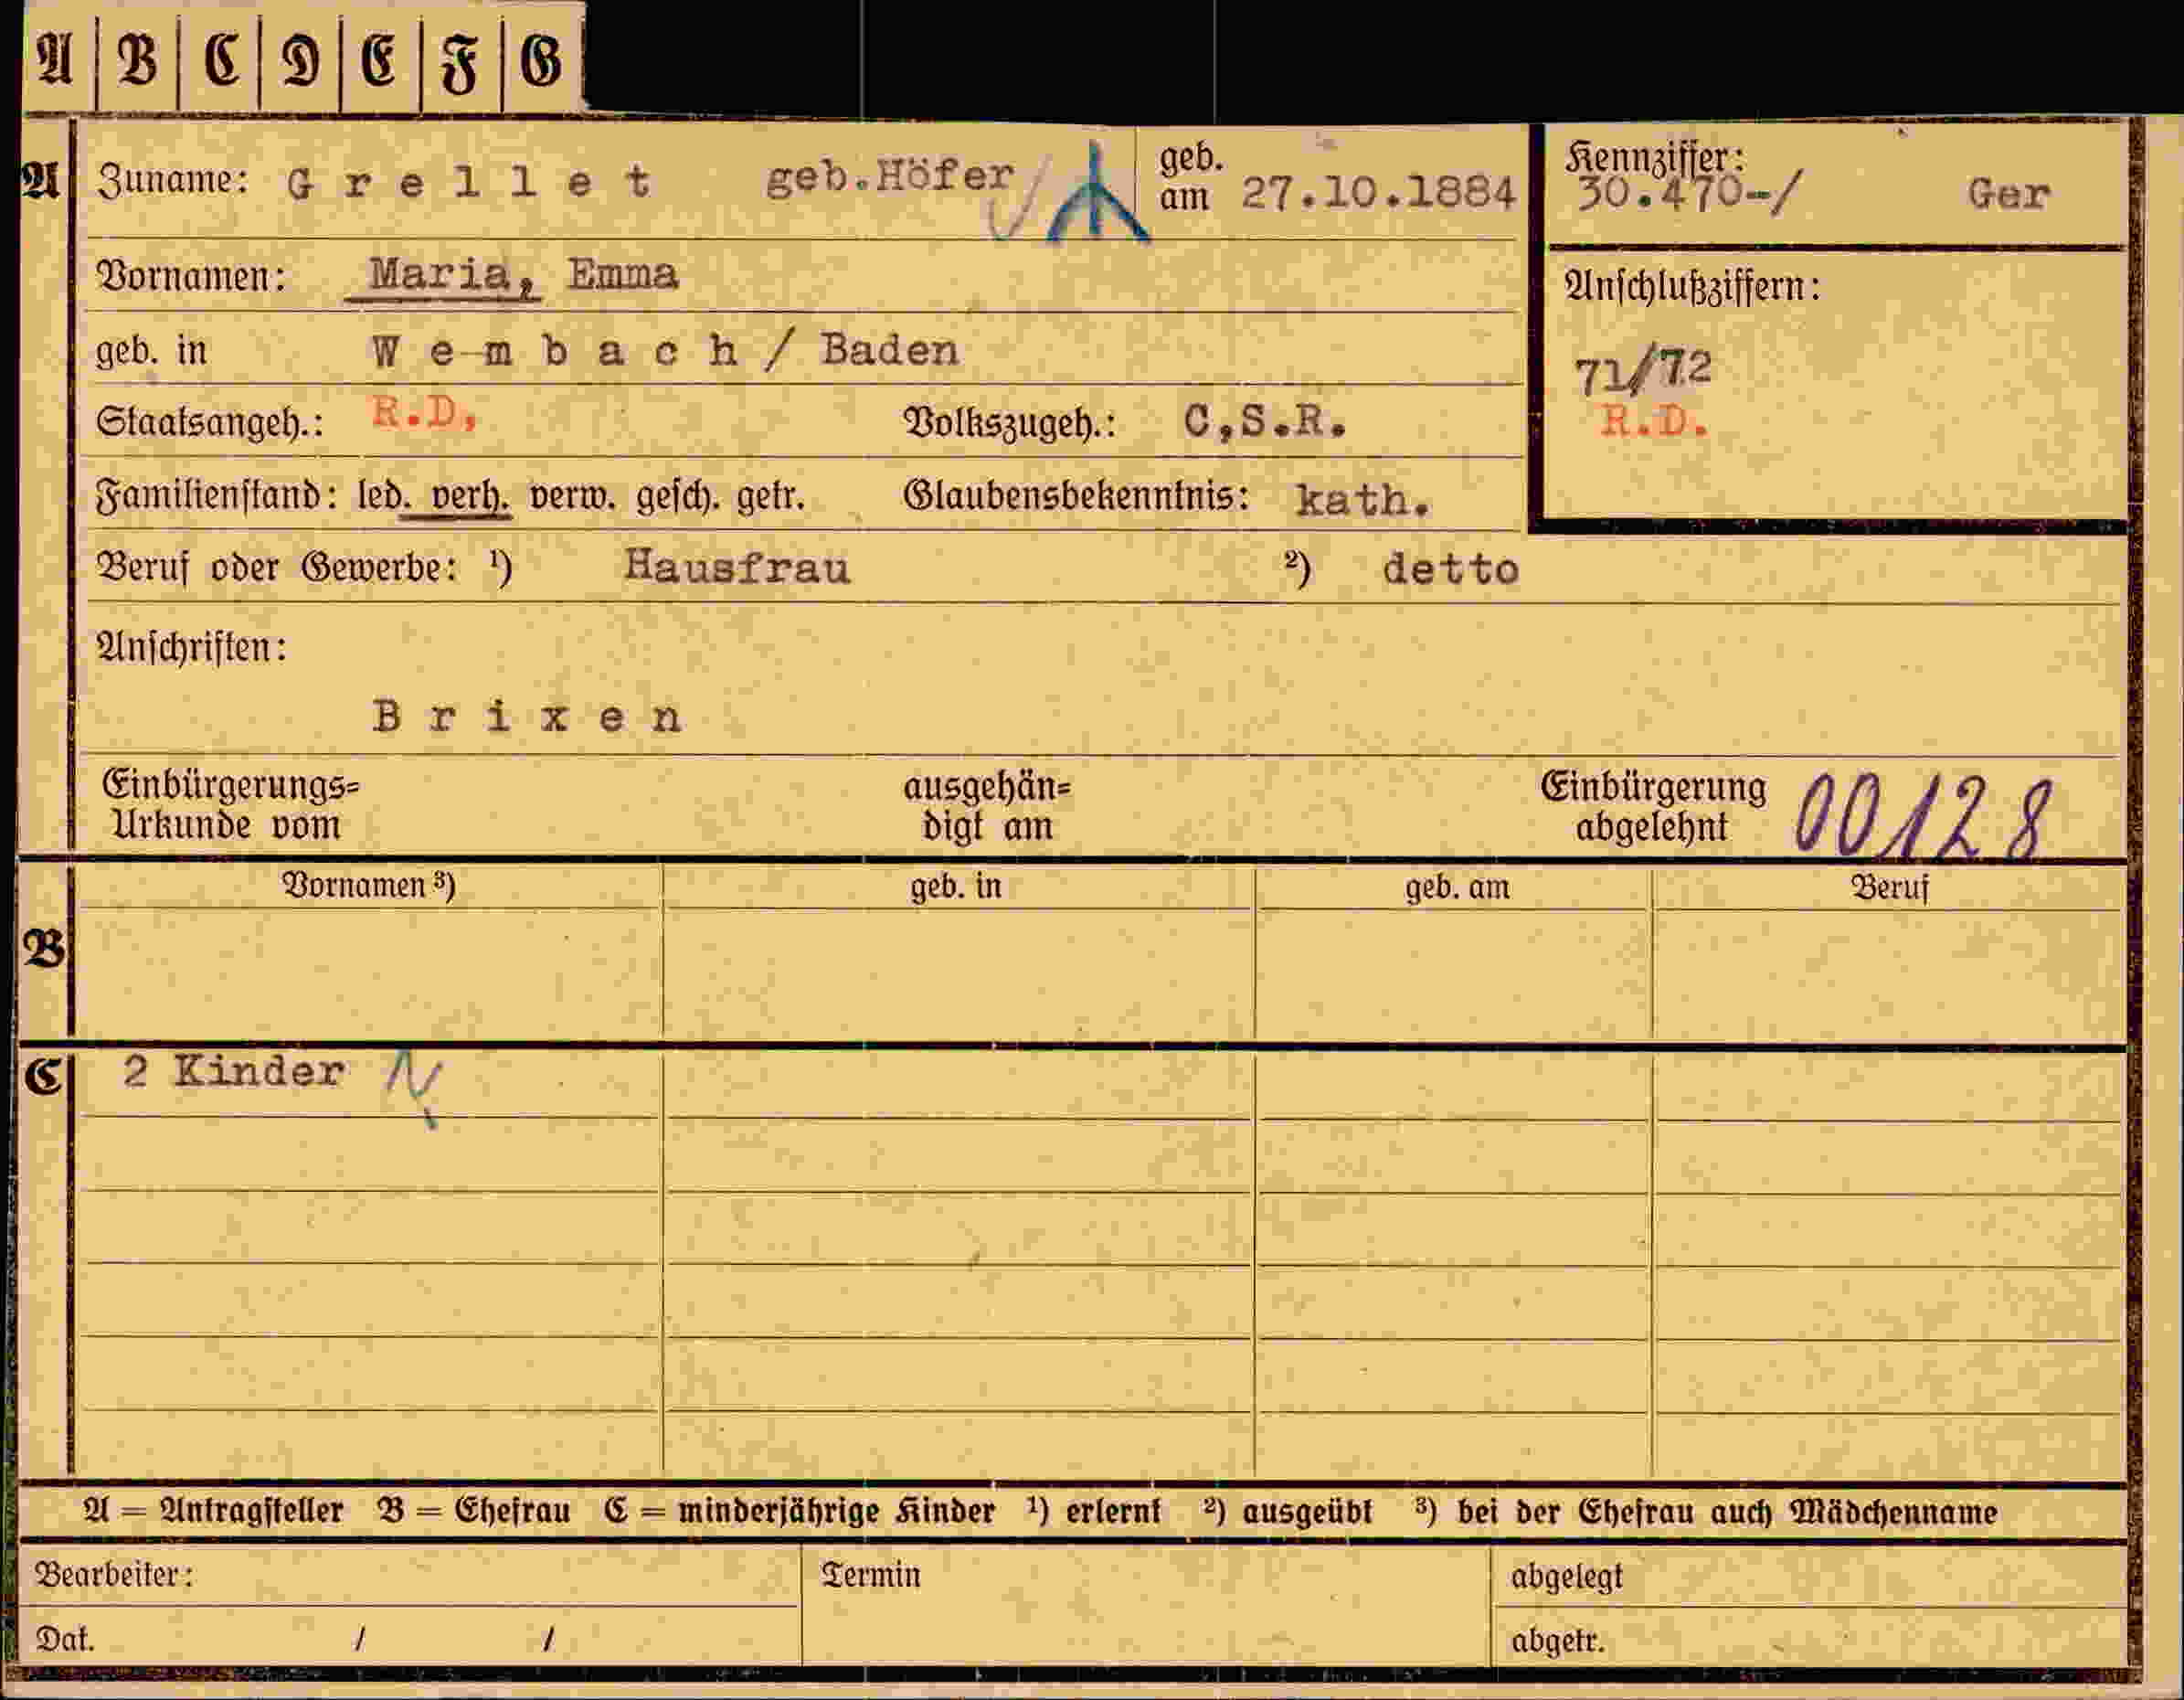 A B C D E F G
A Zuname: Grellet geb.Höfer geb. am 27.10.1884 Kennziffer: 30.470-/ Ger
Vornamen: Maria, Emma
Anschlußziffern:
geb. in Wembach/ Baden
71/72
Staatsangeh.: R.D, Volkszugeh.: C,S.R.
R.D.
Familienstand: led. verh. verw. gesch. getr. Glaubensbekenntnis: kath.
Beruf oder Gewerbe: ¹) Hausfrau ²) detto
Anschriften:
Brixen
Einbürgerungs= ausgehän= Einbürgerung 00128
Urkunde vom digt am abgelehnt
Vornamen ³) geb. in geb. am Beruf
B
C 2 Kinder
A = Antragsteller B = Ehefrau C = minderjährige Kinder ¹) erlernt ²) ausgeübt ³) bei der Ehefrau auch Mädchenname
Bearbeiter: Termin abgelegt
Dat. / / abgetr.